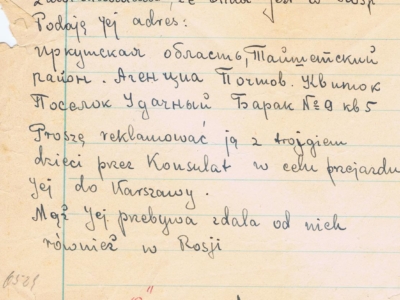 że ona jest w
Podaję jej adres:
иркутская область, Тайшетский
район. Агенциа Почтов. Квиток
Поселок Удачный Барак № 9 кв 5
Proszę reklamować ją z trojgiem
dzieci przez Konsulat w celu przejazdu
Jej do Warszawy.
Mąż Jej przebywa zdala od nich
również w Rosji